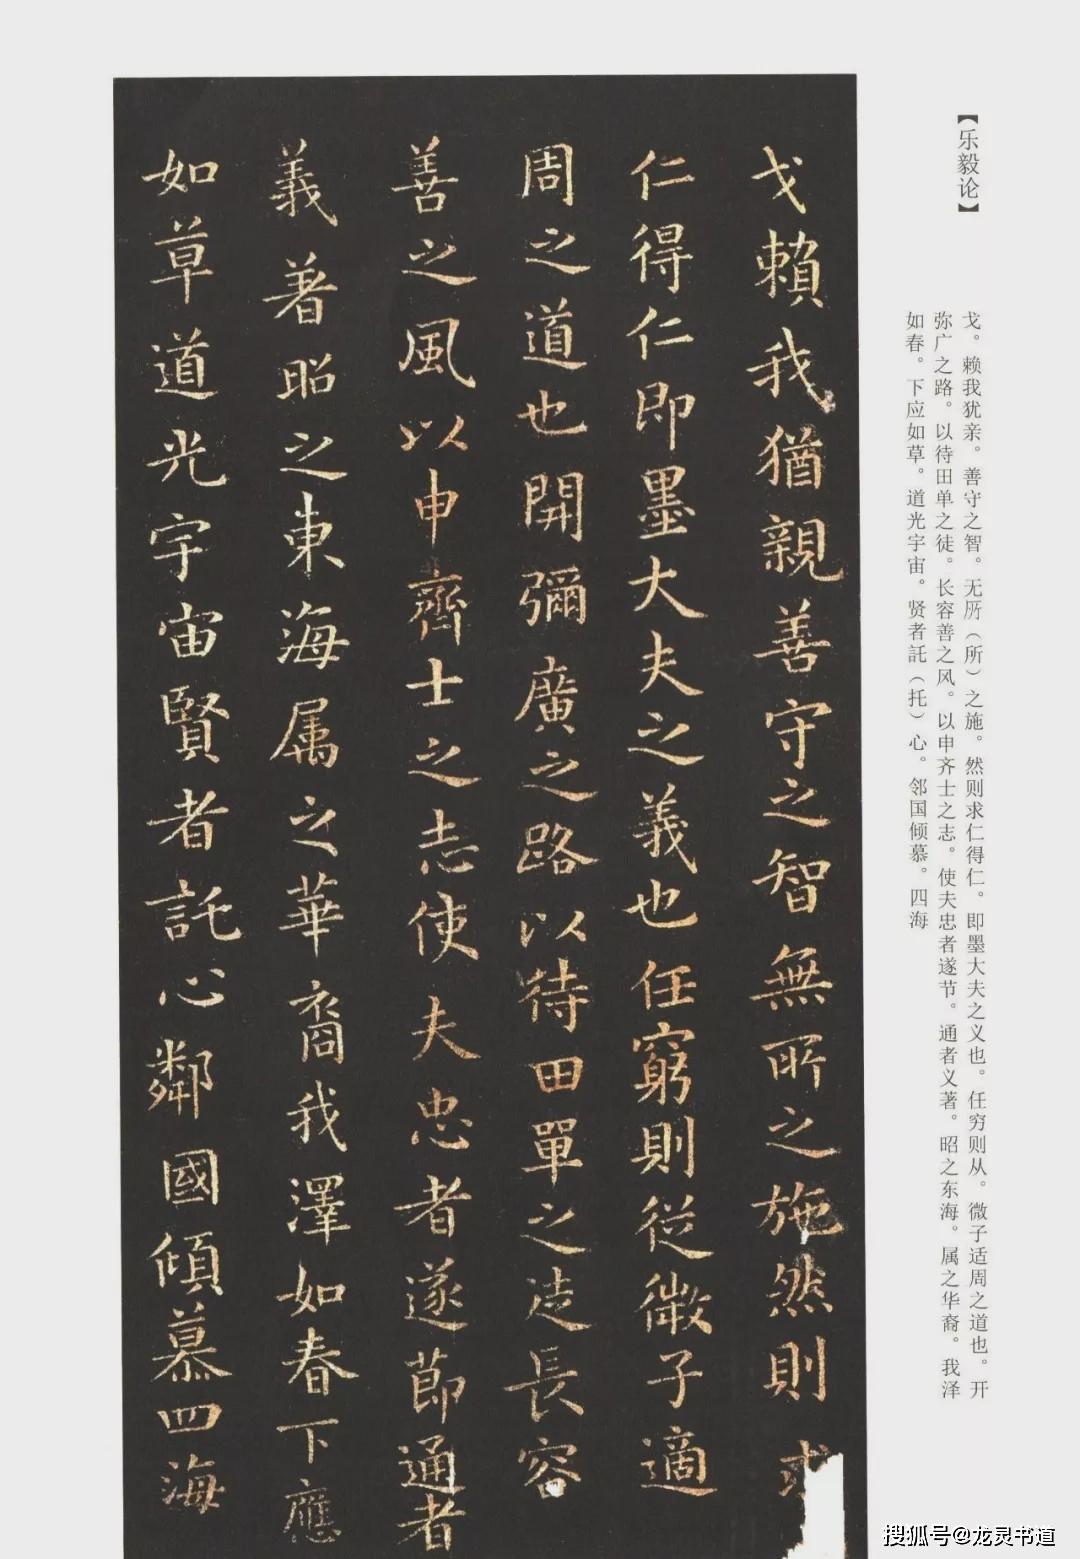 【乐毅论】
戈。赖我犹亲。善守之智。无㕂（所）之施。然则求仁得仁。即墨大夫之义也。任穷则从。微子适周之道也。开
弥广之路。以待田单之徒。长容善之风。以申齐士之志。使夫忠者遂节。通者义著。昭之东海。属之华裔。我泽
如春。下应如草。道光宇宙。贤者託（托）心。邻国倾慕。四海
戈賴我猶親善守之智無所之施然則求
仁得仁即墨大夫之義也任窮則從微子適
周之道也開彌廣之路以待田單之徒長容
善之風以申齊士之志使夫忠者遂節通者
義著昭之東海属之華裔我澤如春下應
如草道光宇宙賢者託心鄰國傾慕四海
搜狐号@龙灵书道